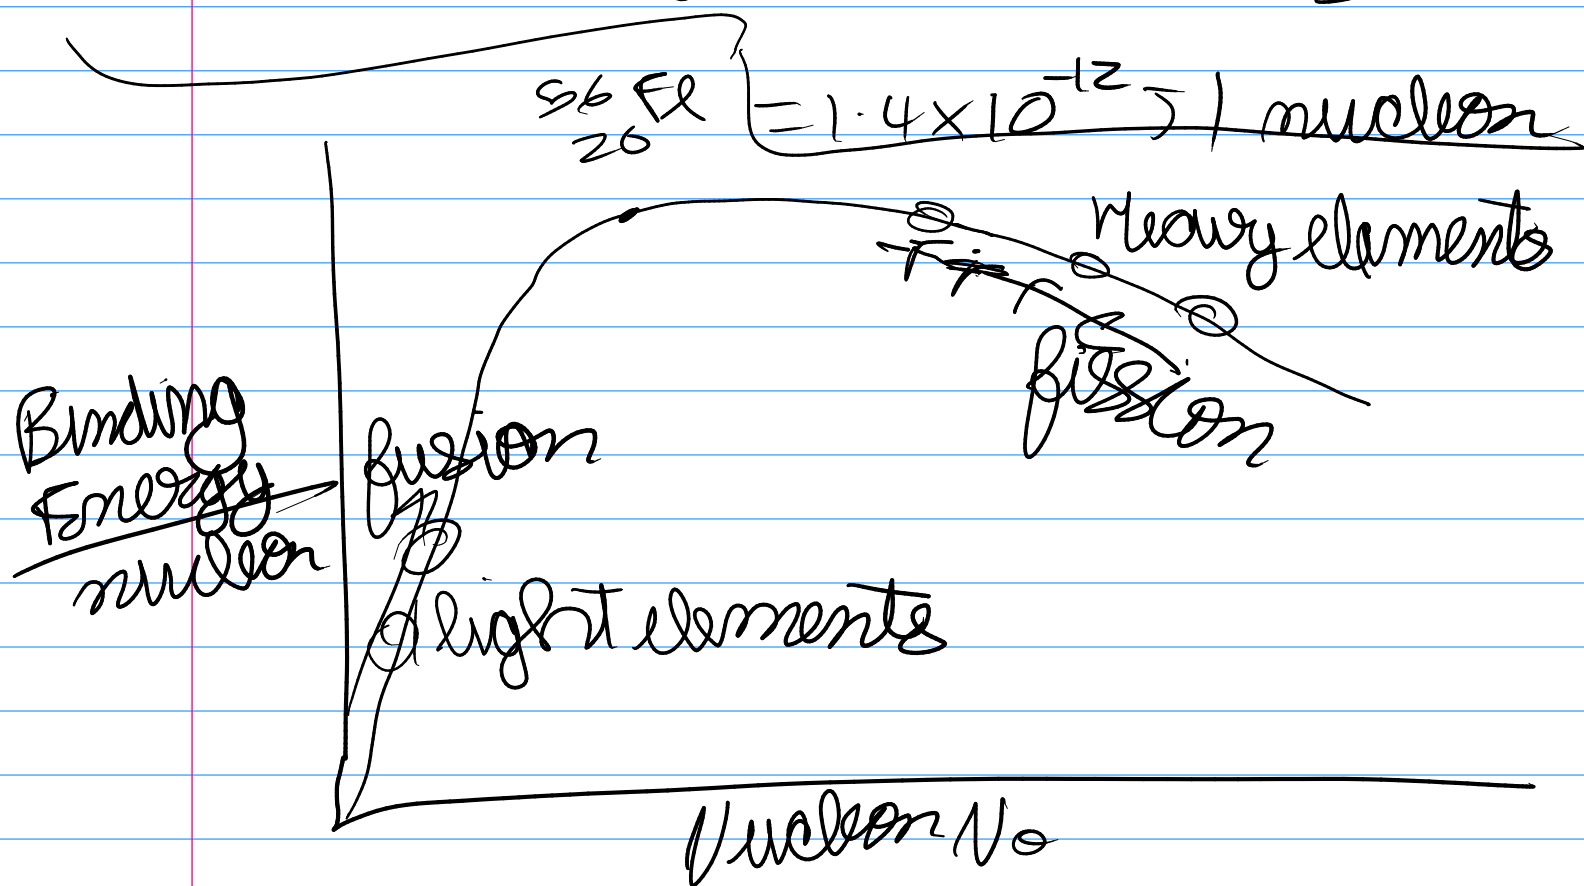 56 Fe = 1.4×10^-12 J / nucleon
26
Heavy elements
fission
Binding
Energy
nucleon
fusion
light elements
Nucleon No